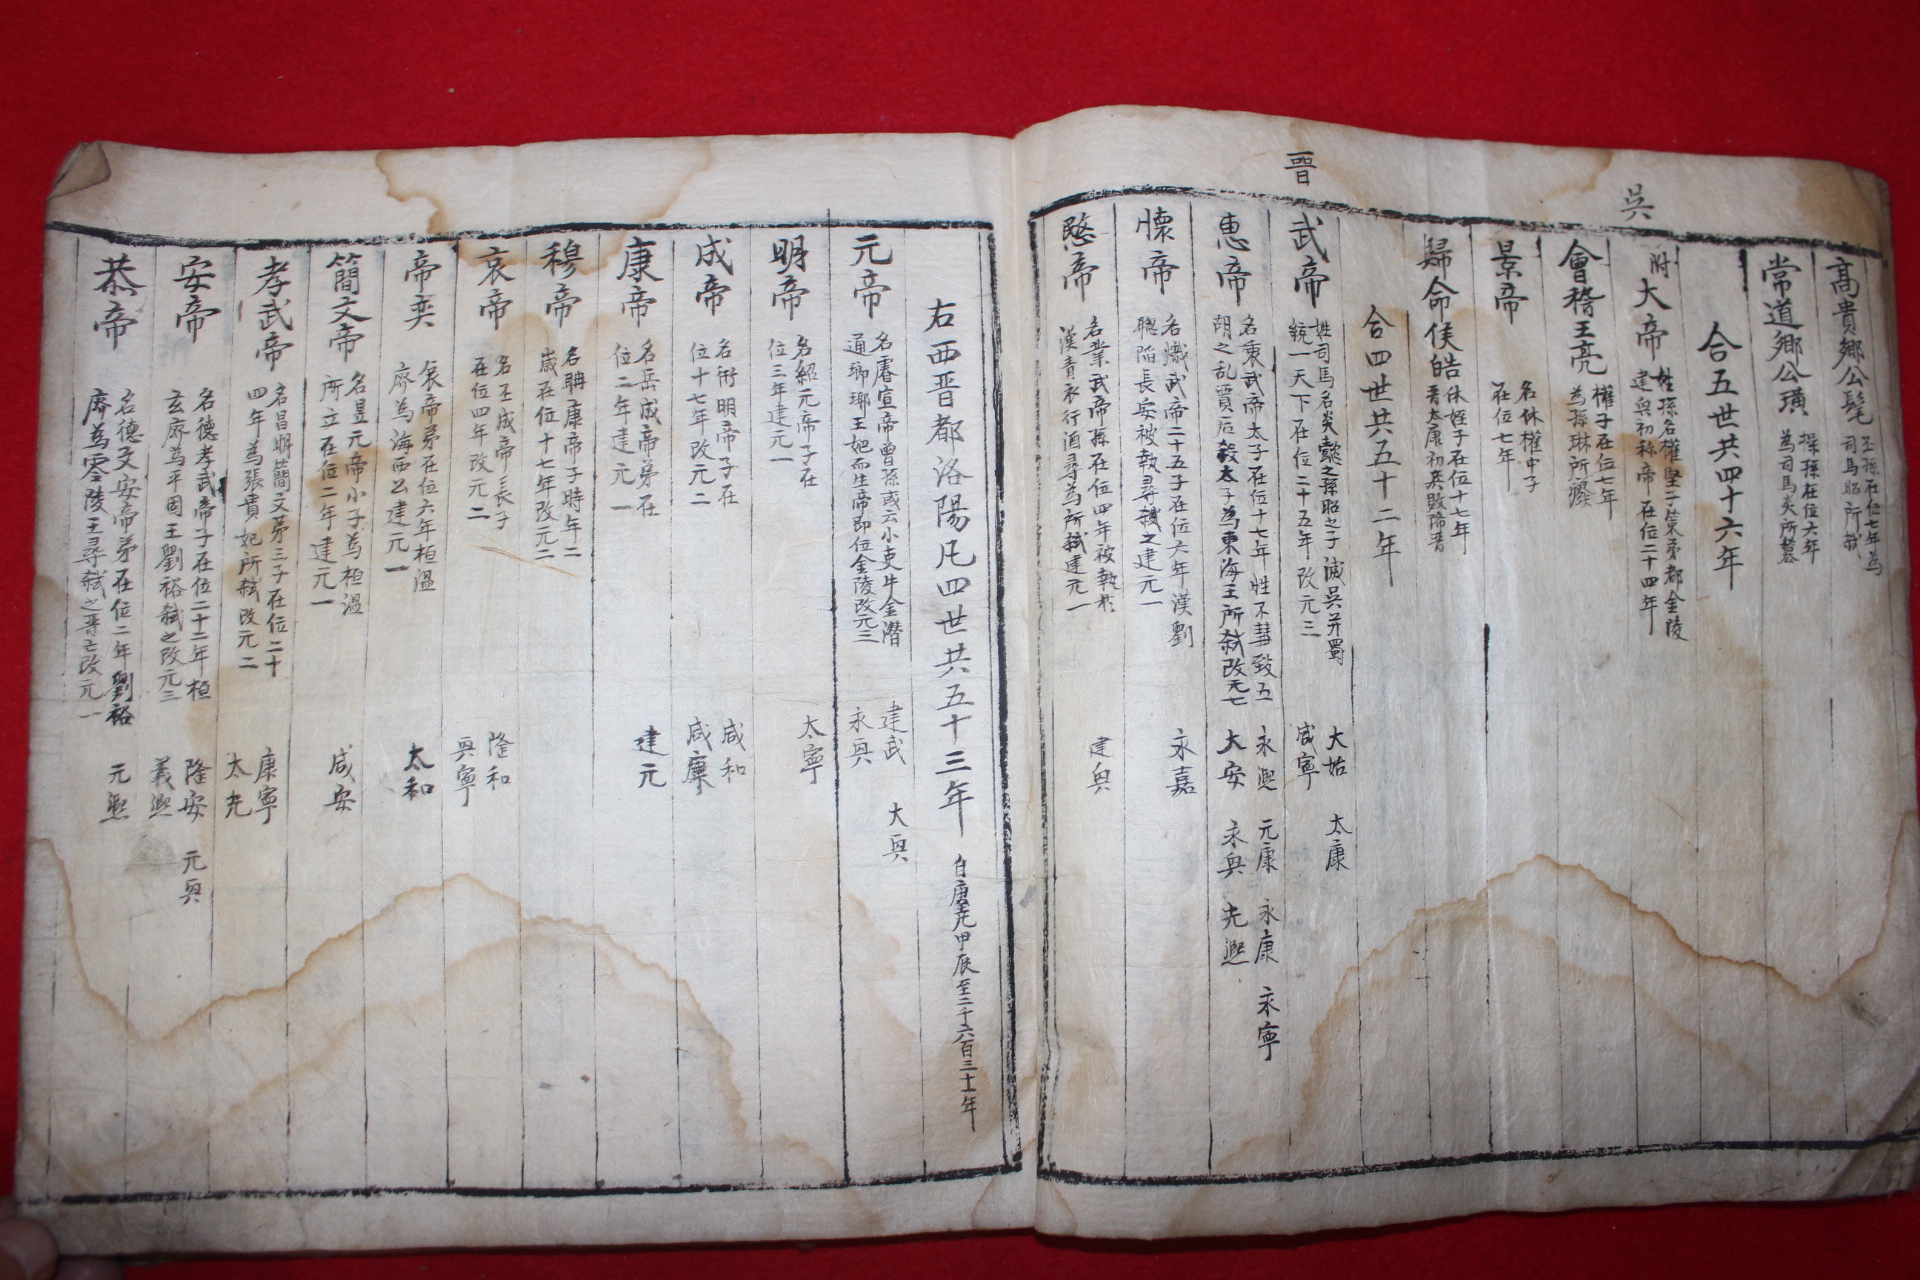 高貴鄉公髦 丕孫在位七年為
司馬昭所弑
常道鄉公璜 操孫在位六年
為司馬炎所簒
合五世共四十六年
吳
附大帝 姓孫名權堅二子策弟都金陵
建興初称帝 在位二十四年
會稽王亮 權子在位七年
為孫琳所廢
景帝 名休權中子
在位七年
歸命侯皓 休姪子在位十七年
晋太康初兵敗降晋
合四世共五十二年
晋
武帝 姓司馬名炎懿之孫昭之子 滅吳并蜀
統一天下在位二十五年 改元三 大始 太康
咸寧
惠帝 名衷武帝太子在位十七年 性不慧致五
胡之乱賈后殺太子為東海王所弑改元七 永熙 元康 永康 永寧
大安 永興 光熙
懷帝 名熾武帝二十五子在位六年漢劉
聰陷長安被執尋弑之建元一 永嘉
愍帝 名業武帝孫在位四年被執於
漢青衣行酒尋為所弑建元一 建興
右西晋都洛陽凡四世共五十三年 自唐尭甲辰至二千六百三十一年
元帝 名睿宣帝曾孫或云小吏牛金潛
通瑯琊王妃而生帝即位金陵改元三 建武 大興
永興
明帝 名紹元帝子在
位三年建元一 太寧
成帝 名衍明帝子在
位十七年改元二 咸和
咸康
康帝 名岳成帝弟在
位二年建元一 建元
穆帝 名聃康帝子時年二
歲在位十七年改元二
哀帝 名丕成帝長子
在位四年改元二 隆和
興寧
帝奕 哀帝弟在位六年桓溫
廢為海西公建元一 太和
簡文帝 名昱元帝小子為桓溫
所立在位二年建元一 咸安
孝武帝 名昌明簡文第三子在位二十
四年 為張貴妃所弑改元二 康寧
太元
安帝 名德孝武帝子在位二十二年桓
玄廢為平固王劉裕弑之改元三 隆安 元興
義熙
恭帝 名德文安帝弟在位二年劉裕
廢為零陵王尋弑之晋亡改元一 元熙